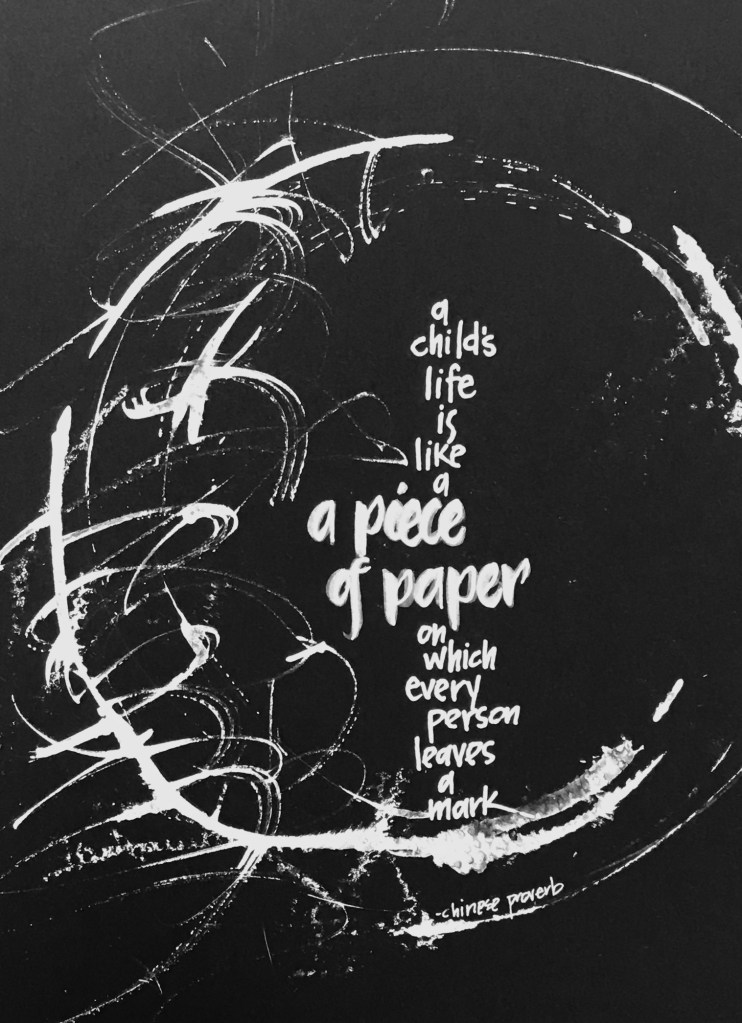 a
child's
life
is
like
a
a piece
of paper
on
which
every
person
leaves
a
mark
-chinese proverb